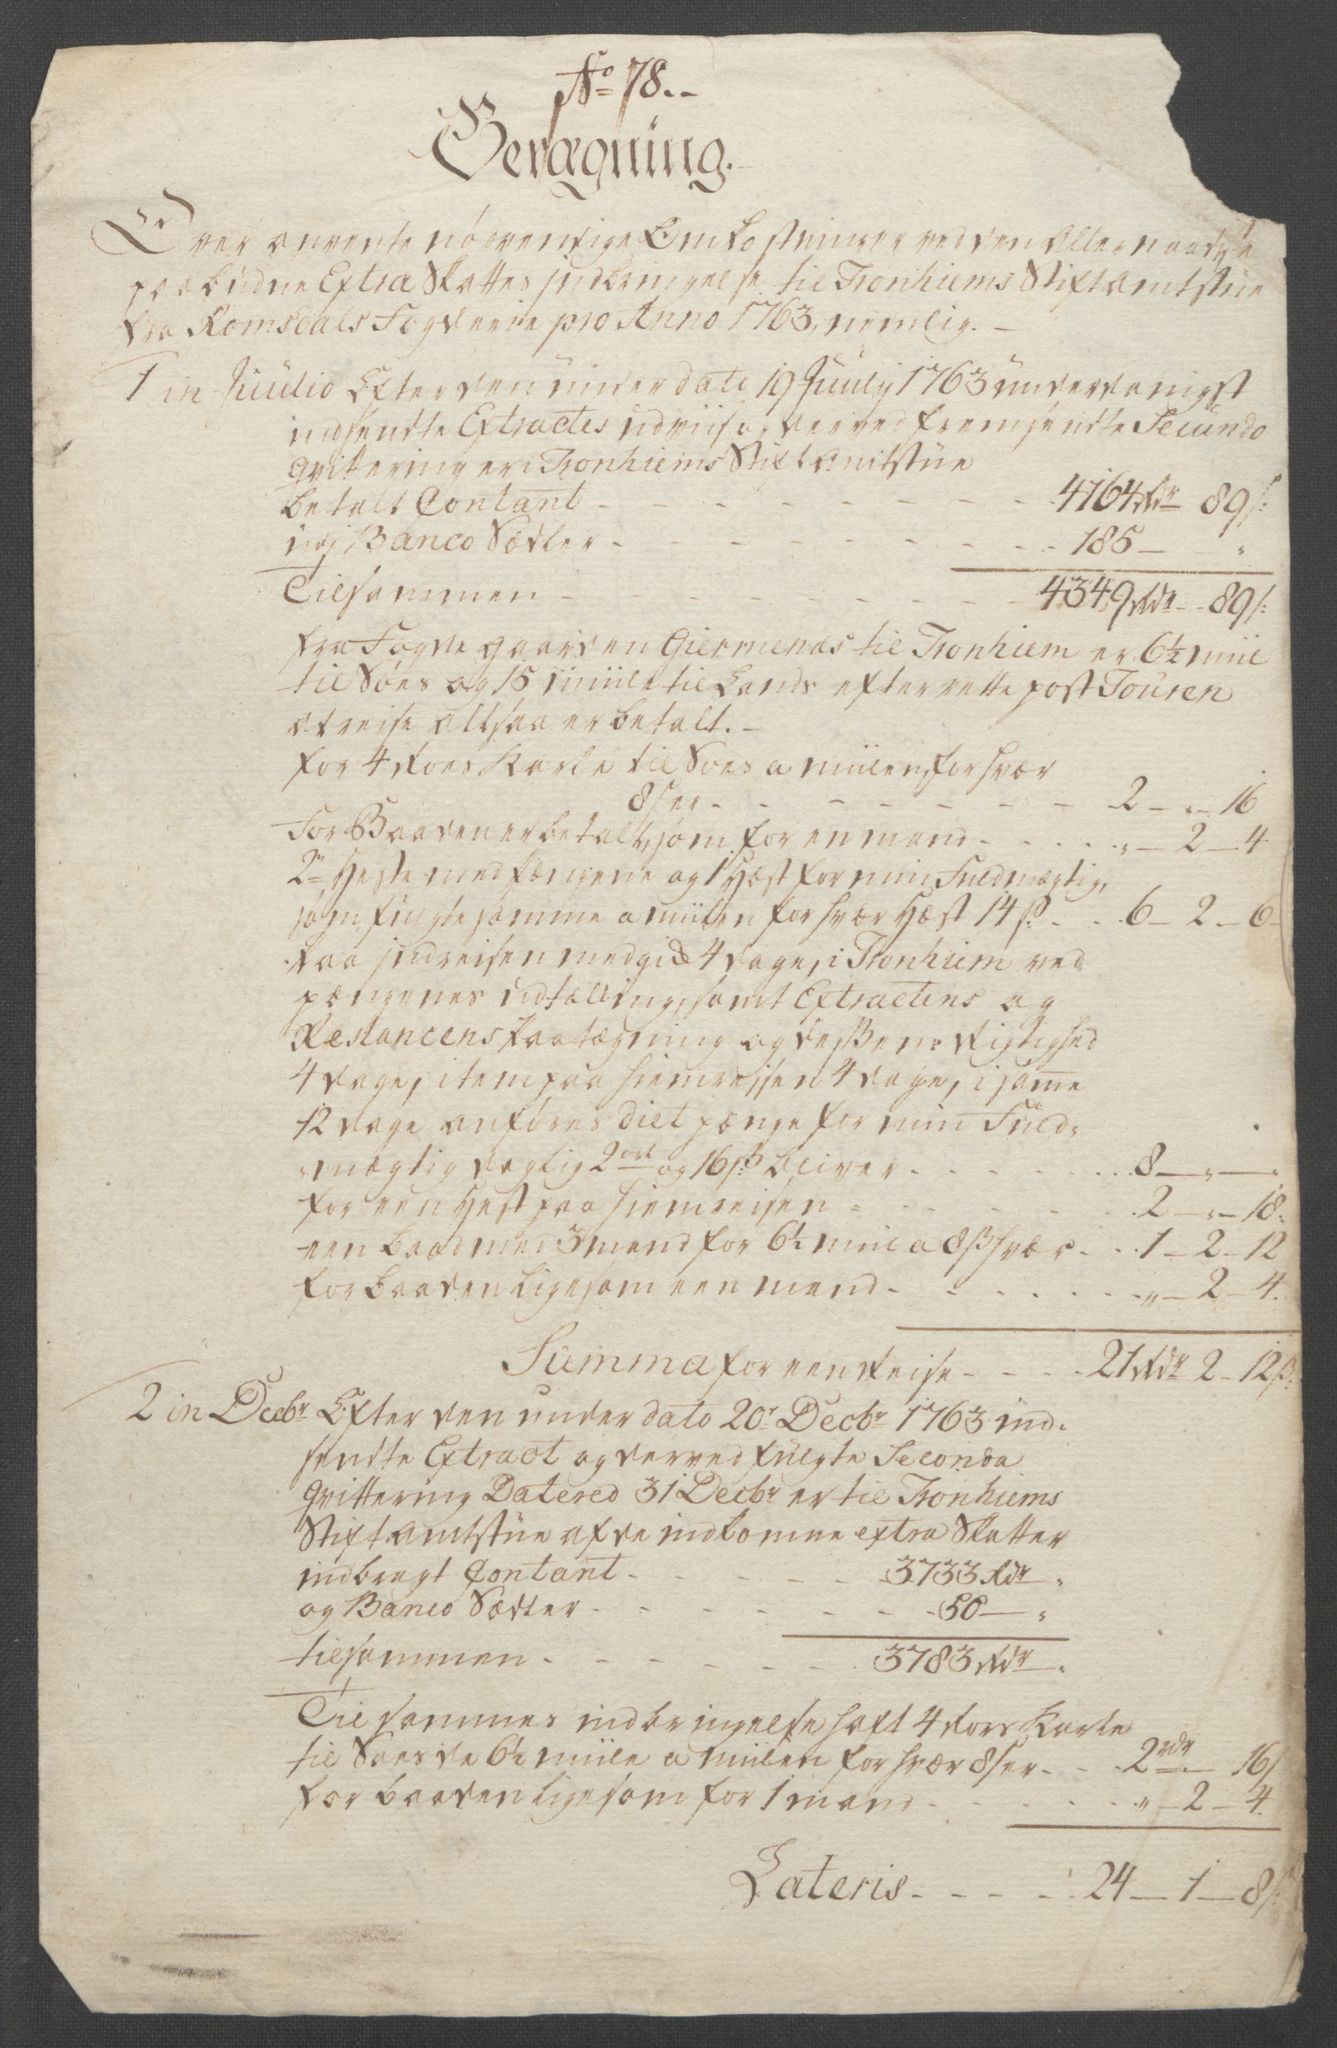 No 78.
Beregning.
Over anvente nødvendige Omkostninger ved den Allernaadigst
paabudne Extra Skattes Indbringelse til Tronhiems Stiftamtstue
fra Romsdals Fogderie pro Anno 1763, nemlig. -
1 in Juulio Efter den under dato 19 Juuly 1763 underdanigst
indsendte Extractes udviis og derved fremsendte Secunda
Qvitering er i Tronhiems Stiftamtstue
betalt Contant - - - 4164 Rdr 89 s:
udj Banco Sedler - - - 185 — "
Tilsammen - - - 4349 Rdr - 89 s:
fra Fogde gaarden Giermenæs til Tronhiem er 6½ miil
til Søes og 15 miile til Lands efter rette post Touren
at reise altsaa er betalt. -
for 4 Roers Karle til Søes a miilen for hvær
8 ser - - - 2 — " — 16
For Baaden er betalt som for en mand - - - " — 2 — 4
2de Heste med pængene og 1 Hæst for min Fuldmægtig,
som fulgte samme a miilen for hvær Hæst 14 s. - - 6 — 2 — 6
paa Indreisen medgik 4 dage, i Tronhiem ved
pængenes udtælling, samt Extractens og
Restancens paategning og desßen rigtighed
4 dage, item paa hiemreisen 4 dage, i samme
12 dage anføres diet pænge for min Fuld-
mægtig daglig 2 ort og 16 s. bliver - - - 8 — " — "
for een Hest paa hiemreisen - - - 2 — " — 18:
een baad med 3 mand for 6½ miil a 8 s hvær - - 1 — 2 — 12
for baaden ligesom een mand - - - " — 2 — 4.
Summa for een Reise - - - 21 Rdr 2 - 12 s:
2 in Decbr Efter den under dato 20r Decbr 1763 ind-
sendte Extract og derved fulgte Seconda
Qvittering Datered 31 Decbr er til Tronhiems
Stiftamtstue af de indkomne extra Skatter
indbragt Contant - - - 3733 Rdr "
og Banco Sedler - - - 50 — "
tilsammen - - - 3783 Rdr "
Til sammes indbringelse haft 4 Rors Karle
til Søes de 6½ miile a miilen for hvær 8 ser - - 2 rdr — 16 s
for baaden ligesom for 1 mand - - - " — 2 — 4.
Lateris - - - 24 — 1 — 8 s: